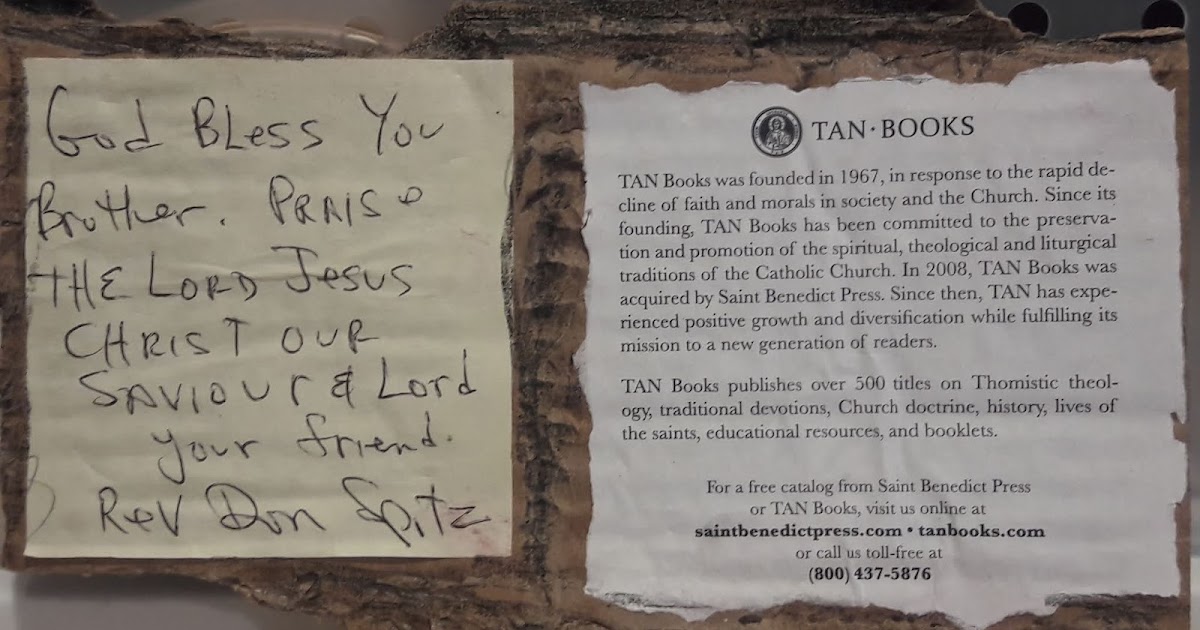 God Bless You
Brother. Praise
THE LORD Jesus
CHRIST OUR
SAVIOUR & Lord
your friend.
Rev Don Spitz
TAN·BOOKS
TAN Books was founded in 1967, in response to the rapid de-
cline of faith and morals in society and the Church. Since its
founding, TAN Books has been committed to the preserva-
tion and promotion of the spiritual, theological and liturgical
traditions of the Catholic Church. In 2008, TAN Books was
acquired by Saint Benedict Press. Since then, TAN has expe-
rienced positive growth and diversification while fulfilling its
mission to a new generation of readers.
TAN Books publishes over 500 titles on Thomistic theol-
ogy, traditional devotions, Church doctrine, history, lives of
the saints, educational resources, and booklets.
For a free catalog from Saint Benedict Press
or TAN Books, visit us online at
saintbenedictpress.com • tanbooks.com
or call us toll-free at
(800) 437-5876